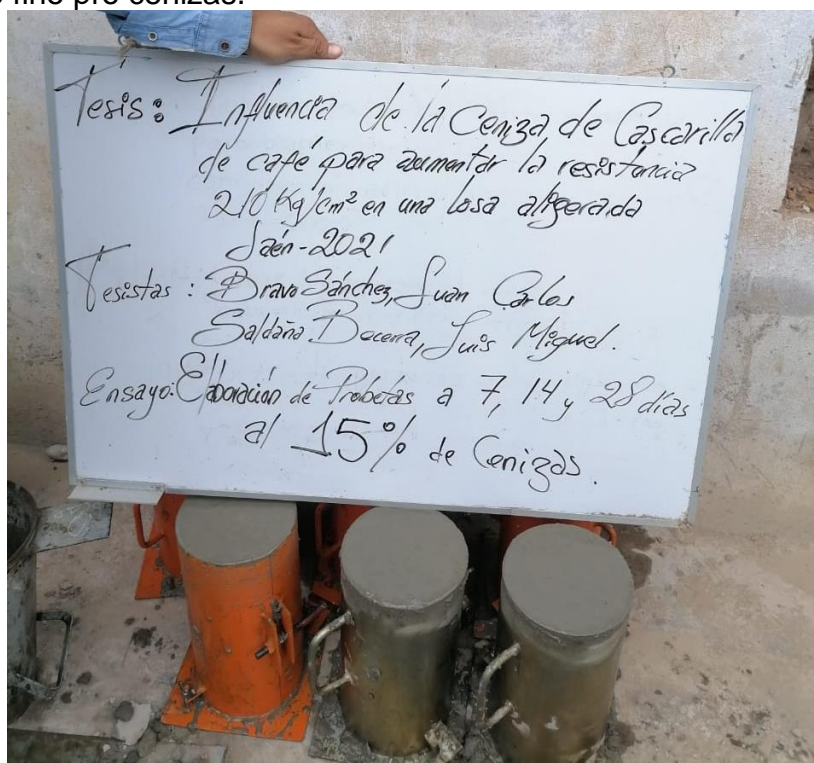 fino pre cenizas.
Tesis: Influencia de la Ceniza de Cascarilla
de café para aumentar la resistencia
210 Kg/cm² en una losa aligerada
Jaén-2021
Tesistas: Bravo Sánchez, Juan Carlos
Saldaña Becerra, Luis Miguel.
Ensayo: Elaboración de Probetas a 7, 14 y 28 días
al 15% de Cenizas.